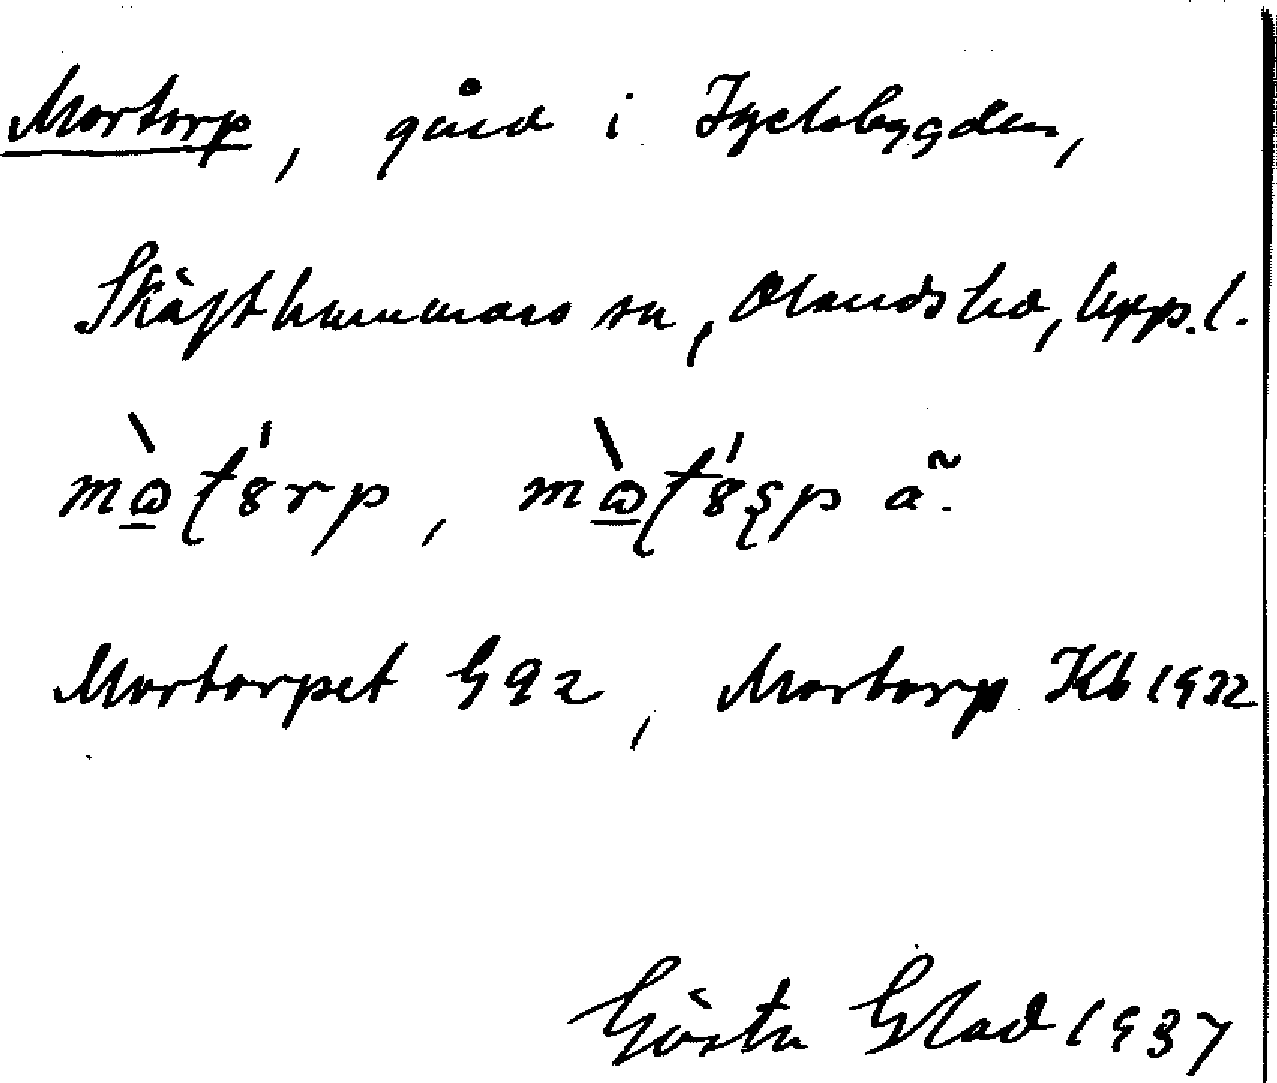 Mortorp, gård i Tyckobygden,
Skäfthammars sn, Olands hd, Uppl.
mὼʈ8́rp, mὼʈ8́ȿp ã.
Mortorpet G92, Mortorp Kb 1922
Gösta Glad 1937